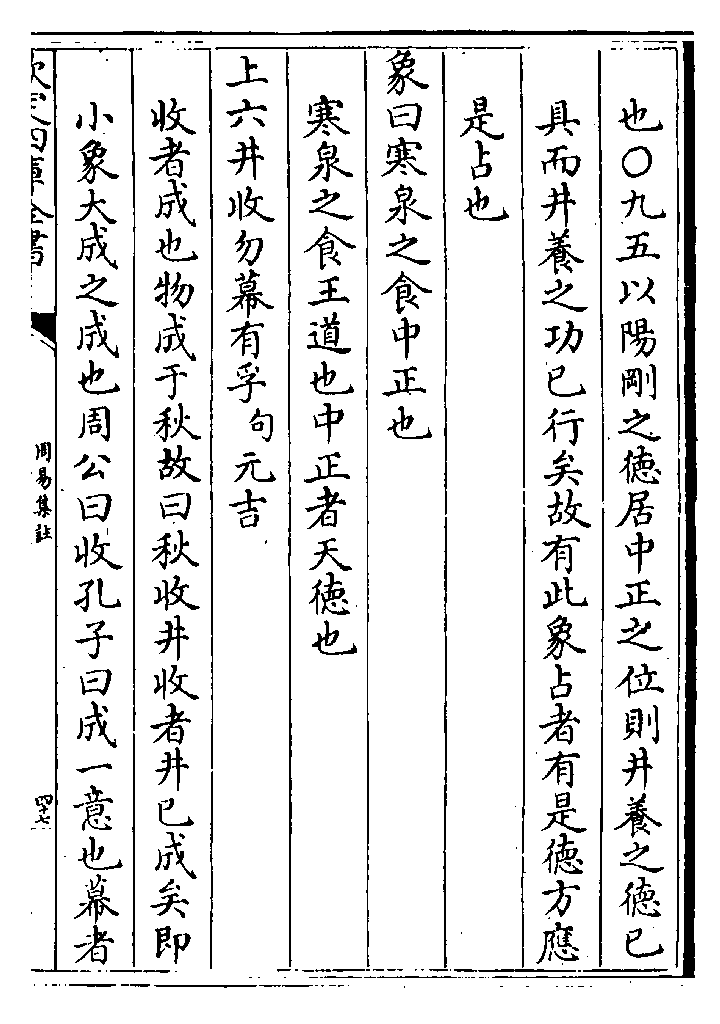 也〇九五以陽剛之德居中正之位則井養之德已
具而井養之功已行矣故有此象占者有是德方應
是占也
象曰寒泉之食中正也
寒泉之食王道也中正者天德也
上六井收勿幕有孚句元吉
收者成也物成于秋故曰秋收井收者井已成矣即
小象大成之成也周公曰收孔子曰成一意也幕者
欽定四庫全書
周易集註
四十七